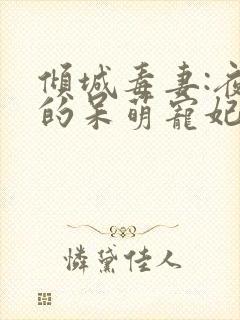 倾城毒妻:夜
的呆萌寵妃
憐黛佳人